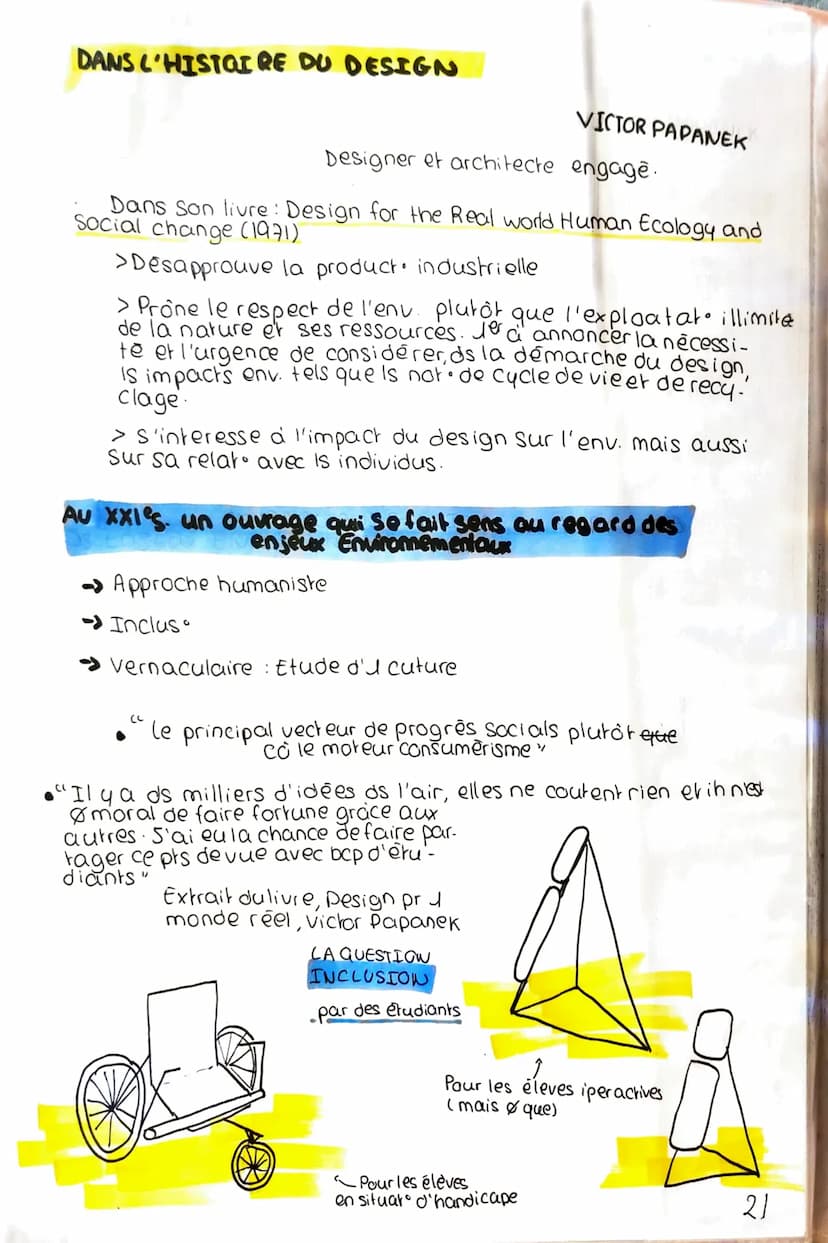 DANS L'HISTOIRE DU DESIGN
VICTOR PAPANEK
Designer et architecte engagé.
Dans son livre : Design for the Real world Human Ecology and
Social change (1971)
>Désapprouve la product° industrielle
> Prône le respect de l'env. plutôt que l'exploatat° illimité
de la nature et ses ressources. 1er à annoncer la nécessi-
té et l'urgence de considérer, ds la démarche du design,
ls impacts env. tels que ls not° de cycle de vie et de recy-
clage.
> s'interesse à l'impact du design sur l'env. mais aussi
sur sa relat° avec ls individus.
AU XXIe s. un ouvrage qui se fait sens au regard des
enjeux Environnementaux
→ Approche humaniste
→ Inclus°
→ Vernaculaire : Etude d'1 cuture
• "le principal vecteur de progrès socials plutôt que
cô le moteur consumérisme"
• "Il y a ds milliers d'idées ds l'air, elles ne coutent rien et ih n'est
Ø moral de faire fortune grâce aux
autres. J'ai eu la chance de faire par-
tager ce pts de vue avec bcp d'étu-
diants"
Extrait du livre, Design pr 1
monde réel, Victor Papanek
LA QUESTION
INCLUSION
par des étudiants
Pour les élèves iperactives
(mais Ø que)
Pour les élèves
en situat° d'handicape
21